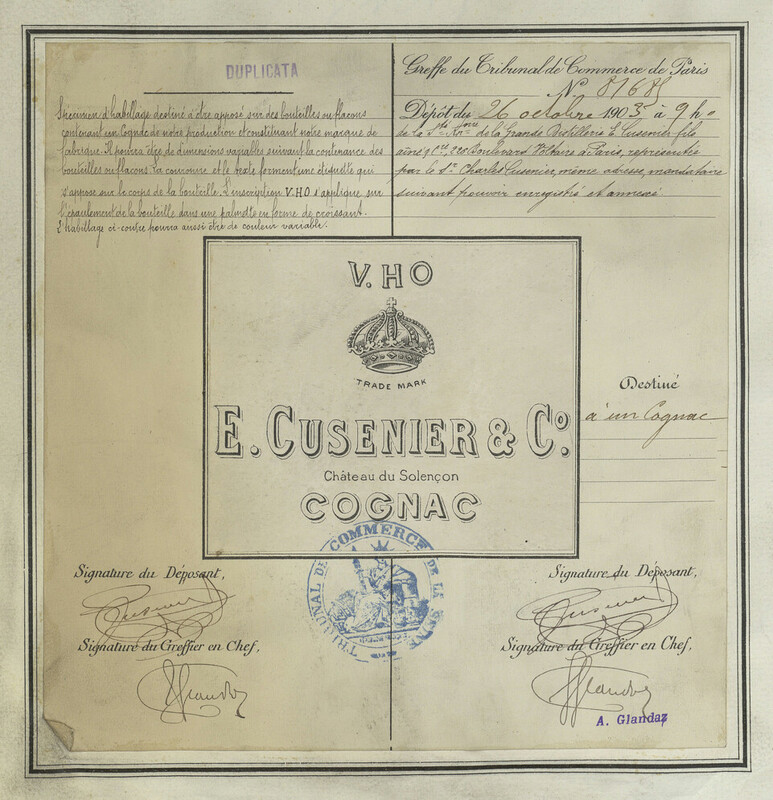 DUPLICATA
Spécimen d'habillage destiné à être apposé sur des bouteilles ou flacons
contenant un Cognac de notre production et constituant notre marque de
fabrique. Il pourra être de dimensions variables suivant la contenance des
bouteilles ou flacons. La couronne et le texte forment une étiquette qui
s'appose sur le corps de la bouteille. L'inscription V.HO s'applique sur
l'épaulement de la bouteille dans une palmette en forme de croissant.
L'habillage ci-contre pourra aussi être de couleur variable.
Greffe du Tribunal de Commerce de Paris
No 87685
Dépôt du 26 octobre 1903 à 9 h
de la Sté Anme de la Grande Distillerie E. Cusenier fils
aîné & Cie, 226 Boulevard Voltaire à Paris, représentée
par le Sr Charles Cusenier, même adresse, mandataire
suivant pouvoir enregistré et annexé
V.HO
TRADE MARK
E. CUSENIER & Co.
Château du Solençon
COGNAC
Destiné
à un Cognac
TRIBUNAL DE COMMERCE DE LA SEINE
Signature du Déposant,
Cusenier
Signature du Greffier en Chef,
Glandaz
Signature du Déposant,
Cusenier
Signature du Greffier en Chef,
Glandaz
A. Glandaz